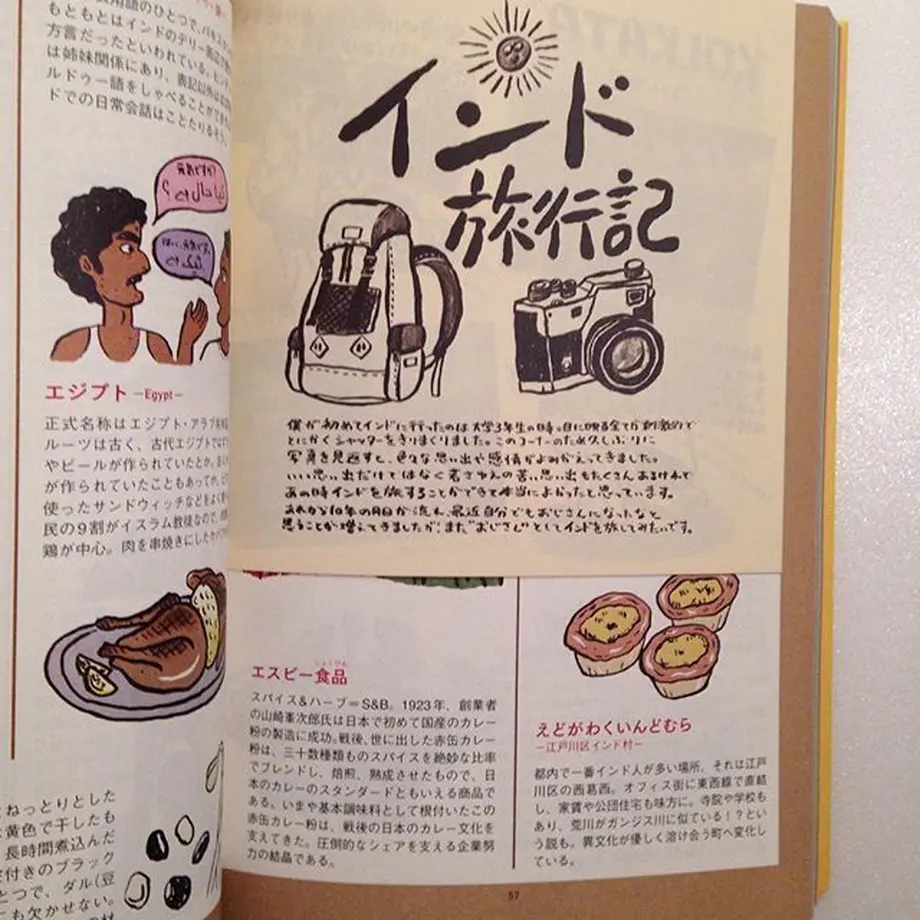 のひとつで、パキス
もともとはインドのデリー
方言だったといわれている。ヒン
は姉妹関係にあり、表記以外は
ルドゥー語をしゃべることができれ
ドでの日常会話はことたりるそう。
元気ですか?
はい、元気です。
エジプト —Egypt—
正式名称はエジプト・アラブ共和
ルーツは古く、古代エジプトでは
やビールが作られていたとか。
が作られていたこともあって、
使ったサンドウィッチなどをよく
民の9割がイスラム教徒なので、
鶏が中心。肉を串焼きにした
ねっとりとした
黄色で干したも
長時間煮込んだ
付きのブラック
とつで、ダル(豆
も欠かせない。
KOLKATA
インド
旅行記
僕が初めてインドに行ったのは大学3年生の時。目に映る全てが刺激的で
とにかくシャッターをきりまくりました。このコーナーのため久しぶりに
写真を見返すと、色々な思い出や感情がよみがえってきました。
いい思い出だけではなく若さゆえの苦い思い出もたくさんあるけれど
あの時インドを旅することができて本当によかったと思っています。
あれから10年の月日が流れ、最近自分でもおじさんになったなと
思うことが増えてきましたが、また"おじさん"としてインドを旅してみたいです。
エスビー食品
しょくひん
スパイス&ハーブ=S&B。1923年、創業者
の山崎峯次郎氏は日本で初めて国産のカレー
粉の製造に成功。戦後、世に出した赤缶カレー
粉は、三十数種類ものスパイスを絶妙な比率
でブレンドし、焙煎、熟成させたもので、日
本のカレーのスタンダードともいえる商品で
ある。いまや基本調味料として根付いたこの
赤缶カレー粉は、戦後の日本のカレー文化を
支えてきた。圧倒的なシェアを支える企業努
力の結晶である。
えどがわくいんどむら
—江戸川区インド村—
都内で一番インド人が多い場所、それは江戸
川区の西葛西。オフィス街に東西線で直結
し、家賃や公団住宅も味方に。寺院や学校も
あり、荒川がガンジス川に似ている!?とい
う説も。異文化が優しく溶け合う町へ変化し
ている。
57